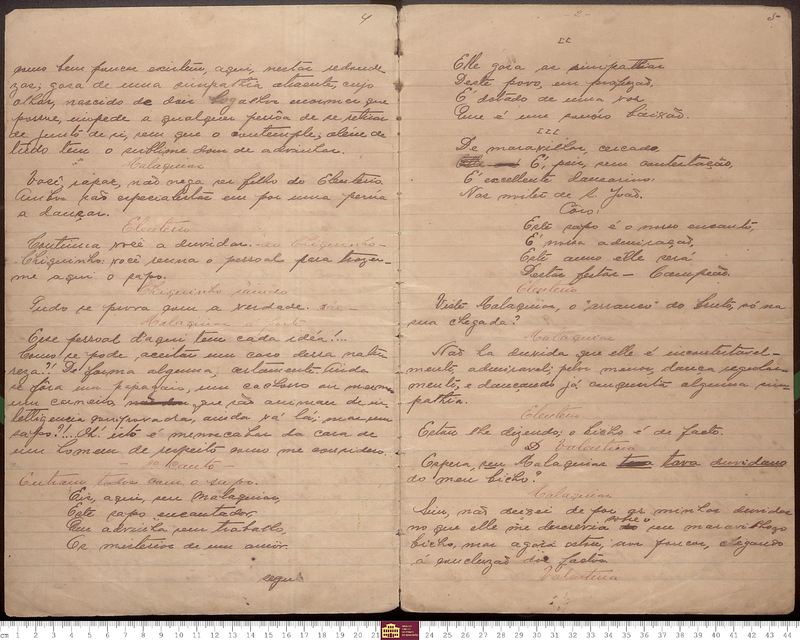 4
mos bem poucos existem, aqui, nestas redonde
zas; gosa de uma simpathia atraente, cujo
olhar, nascido de dois enormes que
possue, impede a qualquer pessôa de se retirar
de junto de si, sem que o contemple; alem de
tudo tem o sublime dom de advinhar.
Malaquias
Você, rapaz, não nega ser filho do Eleuterio.
Ambos são especialistas em por uma perna
a dançar.
Eleuterio
Continua você a duvidar. ao Chiquinho
Chiquinho: você reuna o pessoal para trazer-
me aqui o sapo.
Chiquinho
Tudo se prova com a verdade. sae
Malaquias
Esse pessoal d'aqui tem cada idéa!...
Como se pode aceitar um caso dessa natu
reza?! De forma alguma, certamente. Ainda
se fôra um papagaio, um cachorro ou mesmo
um carneiro que são animaes de in-
telligencia comprovada, ainda vá lá; mas um
sapo?!... Oh! isto é menoscabar da cara de
um homem de respeito como me considero.
Canto
Entram todos com o sapo.
Eis, aqui, seu Malaquias,
Este sapo encantador,
Que advinha sem trabalho,
Os misterios de um amôr.
segue
5
II
Elle gosa as simpathias
Deste povo, em profusão.
E' dotado de uma voz
Que é um sancto baixão.
III
De maravilhas, cercado
E', pois, sem contestação,
E' excellente dansarino:
Nas noites de S. João.
Côro:
Este sapo é o nosso encanto,
E' nossa admiração,
Este anno elle será
Destas festas - Campeão.
Eleuterio
Viste Malaquias, o "arranco" do bruto, só na
sua chegada?
Malaquias
Não ha duvida que elle é incontestavel-
mente admiravel; pelo menos, dansa regular-
mente, e dansando já conquista alguma sim-
pathia.
Eleuterio
Estou lhe dizendo; o bicho é de facto.
D Valentina
Espera, seu Malaquias tava duvidano
do meu bicho?
Malaquias
Sim, não deixei de por as minhas duvidas
no que elle me descrevia sobre o seu maravilhoso
bicho, mas agora estou, aos poucos, chegando
á conclusão dos factos.
Valentina